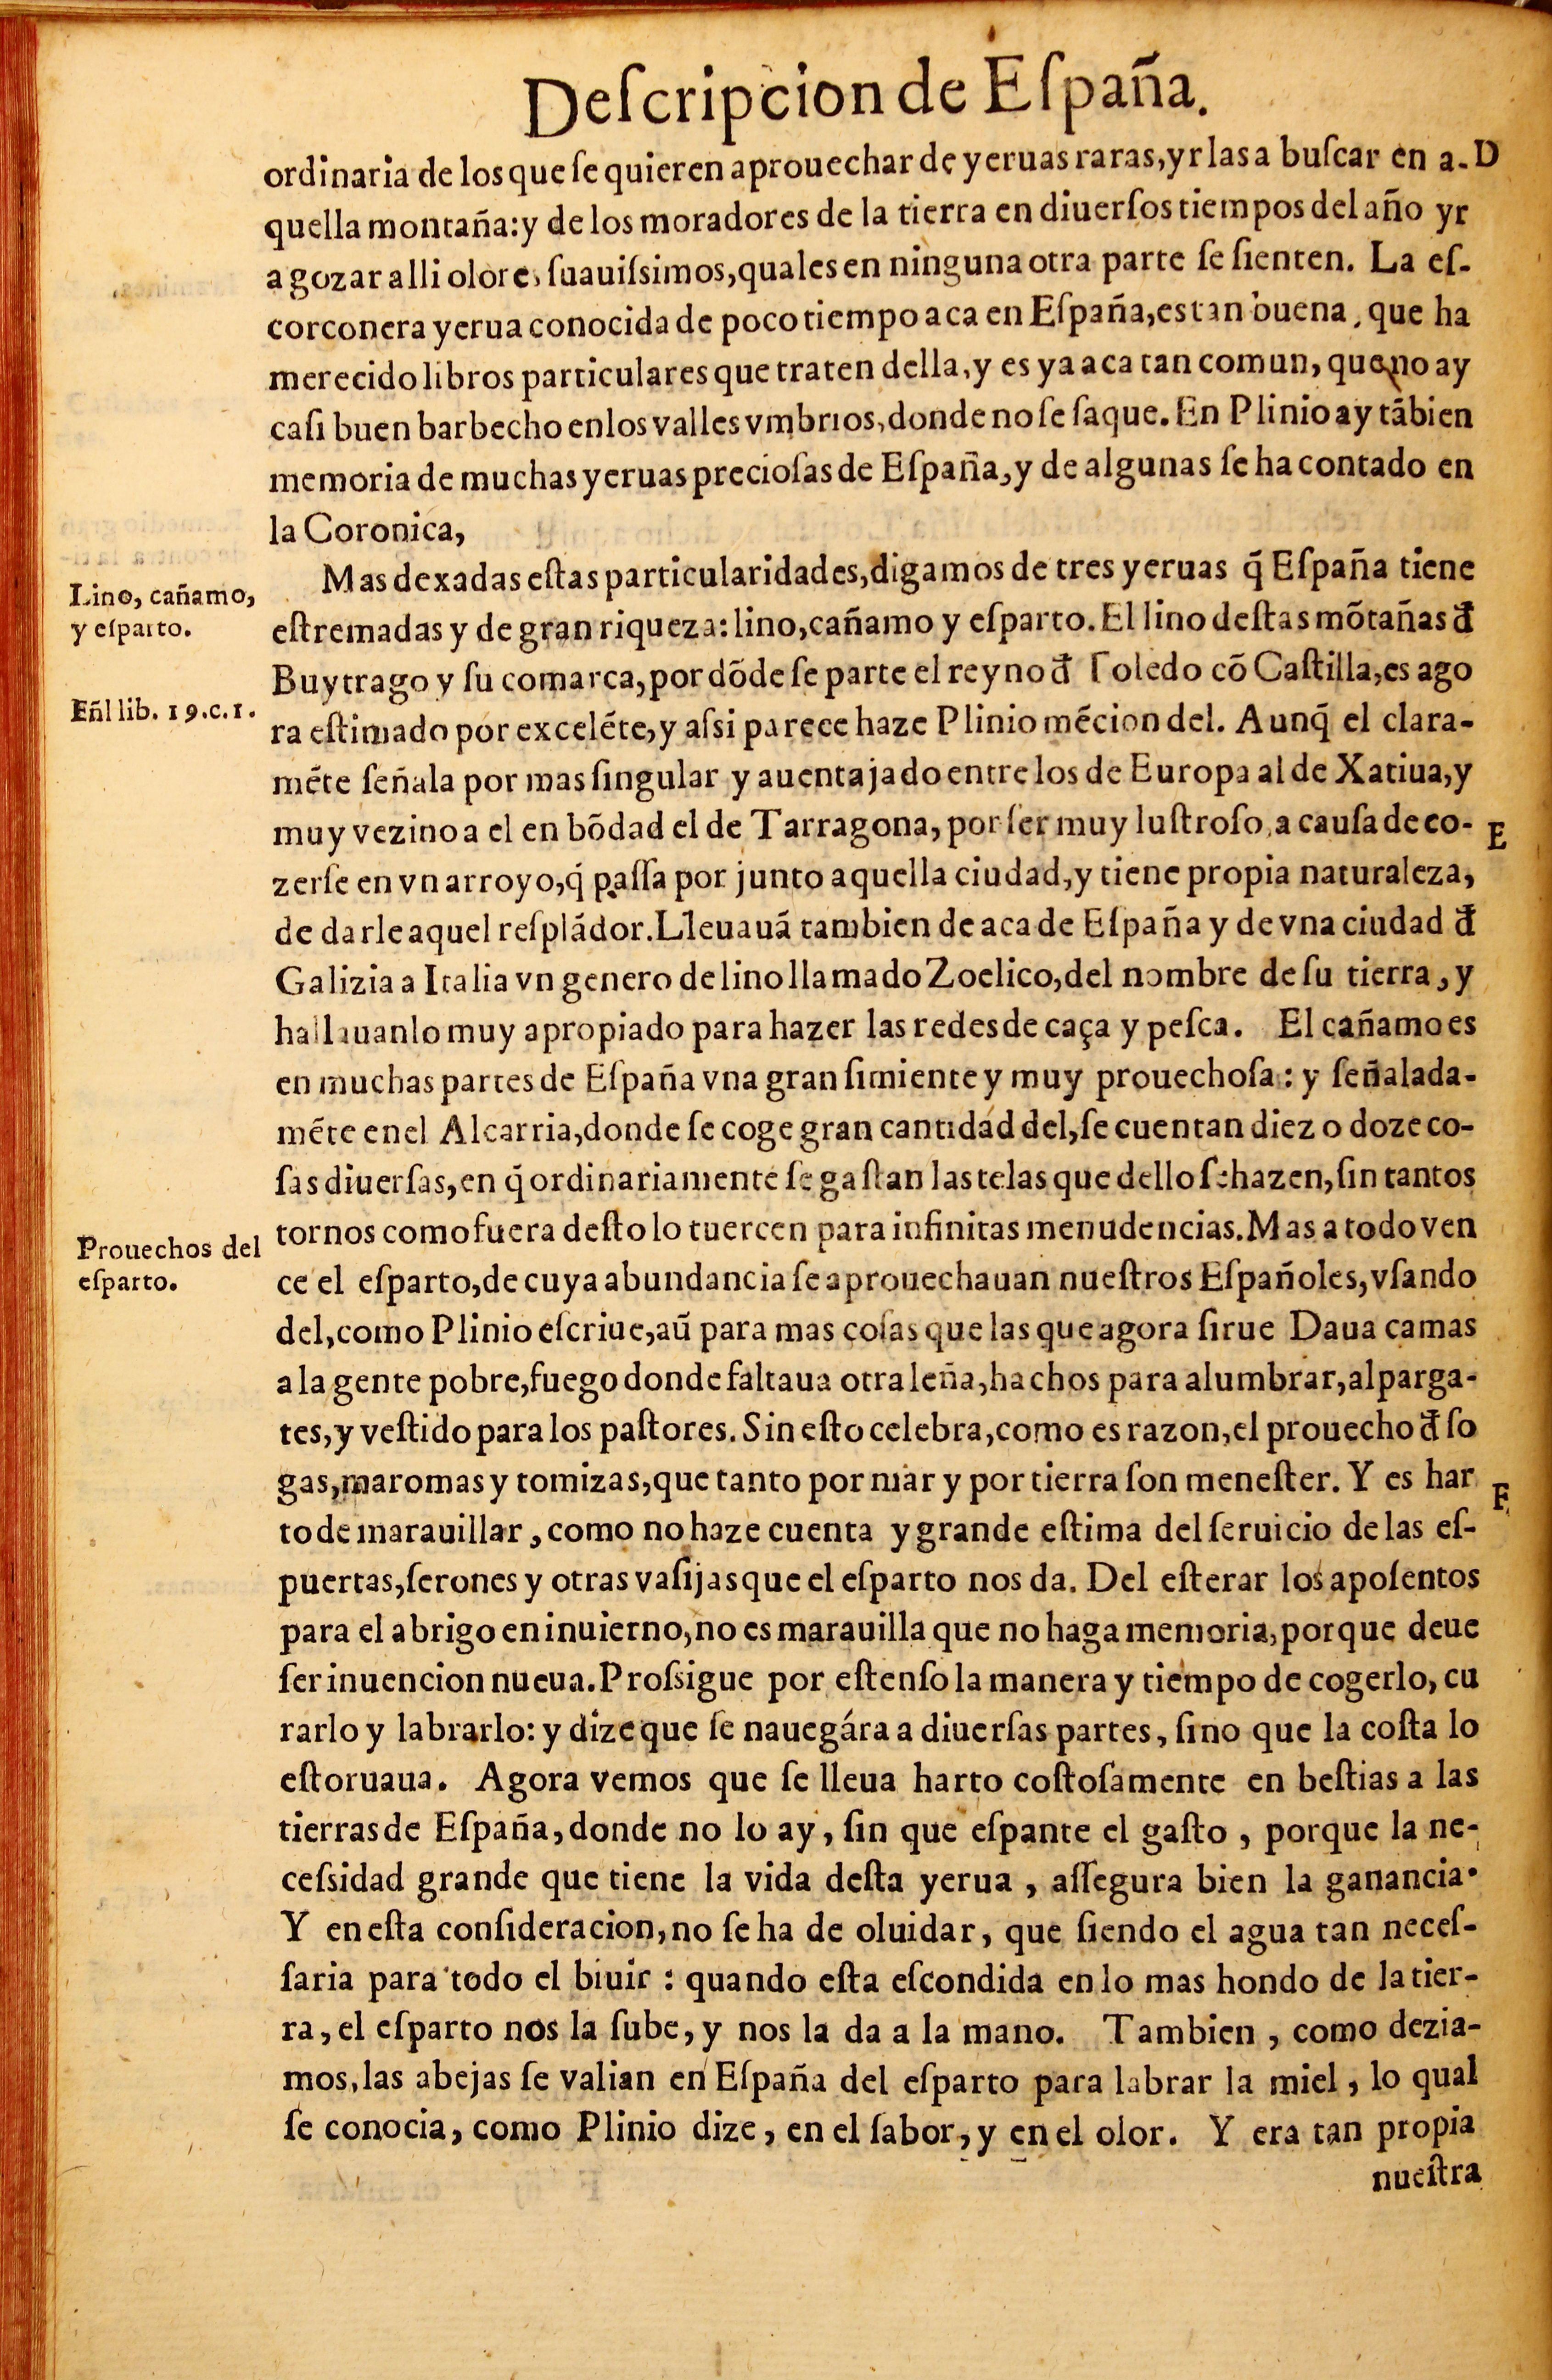 Deſcripcion de Eſpaña.
ordinaria de los que ſe quieren aprouechar de yeruas raras, yrlas a buſcar en a- D
quella montaña: y de los moradores de la tierra en diuerſos tiempos del año yr
a gozar alli olores ſuauiſsimos, quales en ninguna otra parte ſe ſienten. La eſ-
corconera yerua conocida de poco tiempo aca en Eſpaña, es tan buena, que ha
merecido libros particulares que traten della, y es ya aca tan comun, que no ay
caſi buen barbecho enlos valles vmbrios, donde no ſe ſaque. En Plinio ay tãbien
memoria de muchas yeruas precioſas de Eſpaña, y de algunas ſe ha contado en
la Coronica,
Mas dexadas eſtas particularidades, digamos de tres yeruas q̃ Eſpaña tiene
Lino, cañamo,
y eſparto.
eſtremadas y de gran riqueza: lino, cañamo y eſparto. El lino deſtas mõtañas đ
Buytrago y ſu comarca, por dõde ſe parte el reyno đ Toledo cõ Caſtilla, es ago
Eñl lib. 19.c.1.
ra eſtimado por excelẽte, y aſsi parece haze Plinio mẽcion del. Aunq̃ el clara-
mẽte ſeñala por mas ſingular y auentajado entre los de Europa al de Xatiua, y
muy vezino a el en bõdad el de Tarragona, por ſer muy luſtroſo, a cauſa de co- E
zerſe en vn arroyo, q̃ paſſa por junto aquella ciudad, y tiene propia naturaleza,
de darle aquel reſplãdor. Lleuauã tambien de aca de Eſpaña y de vna ciudad đ
Galizia a Italia vn genero de lino llamado Zoelico, del nombre de ſu tierra, y
hallauanlo muy apropiado para hazer las redes de caça y peſca. El cañamo es
en muchas partes de Eſpaña vna gran ſimiente y muy prouechoſa: y ſeñalada-
mẽte enel Alcarria, donde ſe coge gran cantidad del, ſe cuentan diez o doze co-
ſas diuerſas, en q̃ ordinariamente ſe gaſtan las telas que dello ſe hazen, ſin tantos
tornos como fuera deſto lo tuercen para infinitas menudencias. Mas a todo ven
Prouechos del
eſparto.
ce el eſparto, de cuya abundancia ſe aprouechauan nueſtros Eſpañoles, vſando
del, como Plinio eſcriue, aũ para mas coſas que las que agora ſirue Daua camas
a la gente pobre, fuego donde faltaua otra leña, hachos para alumbrar, alparga-
tes, y veſtido para los paſtores. Sin eſto celebra, como es razon, el prouecho đ ſo
gas, maromas y tomizas, que tanto por mar y por tierra ſon meneſter. Y es har F
to de marauillar, como no haze cuenta y grande eſtima del ſeruicio de las eſ-
puertas, ſerones y otras vaſijas que el eſparto nos da. Del eſterar los apoſentos
para el abrigo en inuierno, no es marauilla que no haga memoria, porque deue
ſer inuencion nueua. Proſsigue por eſtenſo la manera y tiempo de cogerlo, cu
rarlo y labrarlo: y dize que ſe nauegára a diuerſas partes, ſino que la coſta lo
eſtoruaua. Agora vemos que ſe lleua harto coſtoſamente en beſtias a las
tierras de Eſpaña, donde no lo ay, ſin que eſpante el gaſto, porque la ne-
ceſsidad grande que tiene la vida deſta yerua, aſſegura bien la ganancia.
Y en eſta conſideracion, no ſe ha de oluidar, que ſiendo el agua tan neceſ-
ſaria para todo el biuir: quando eſta eſcondida en lo mas hondo de la tier-
ra, el eſparto nos la ſube, y nos la da a la mano. Tambien, como dezia-
mos, las abejas ſe valian en Eſpaña del eſparto para labrar la miel, lo qual
ſe conocia, como Plinio dize, en el ſabor, y en el olor. Y era tan propia
nueſtra